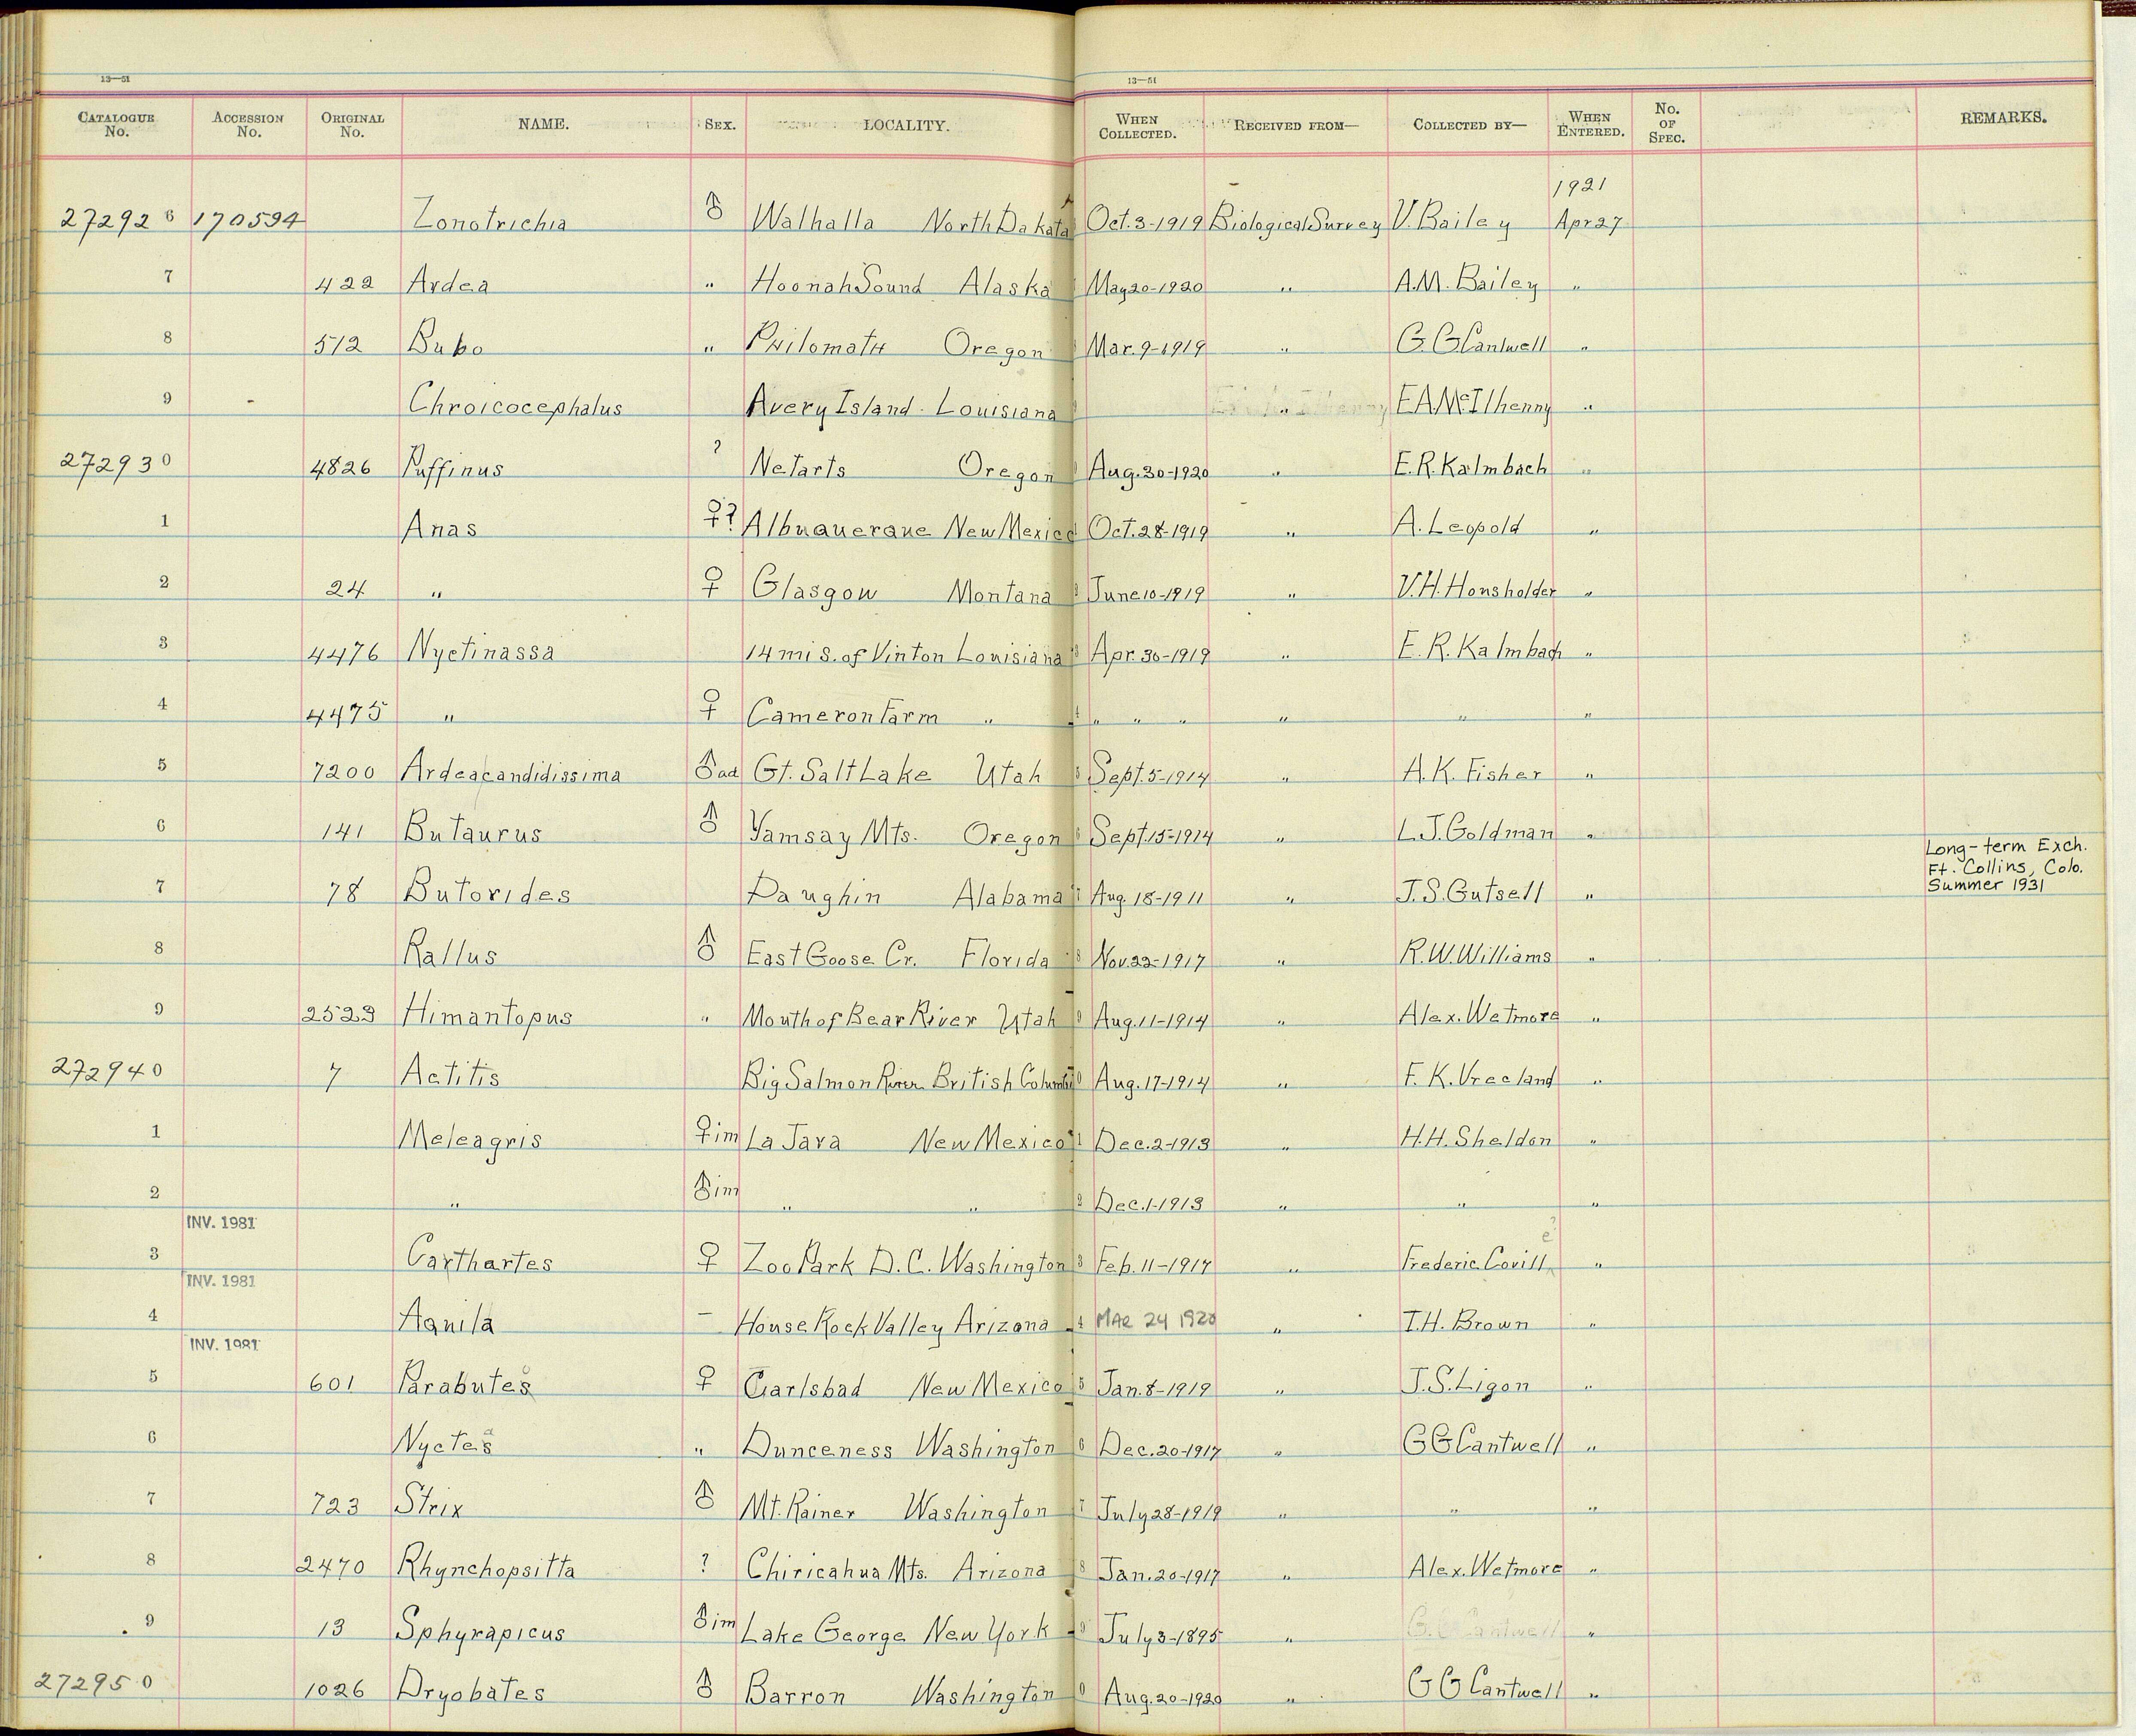 13—51 13—51
CATALOGUE No. ACCESSION No. ORIGINAL No. NAME. SEX. LOCALITY. WHEN COLLECTED. RECEIVED FROM— COLLECTED BY— WHEN ENTERED. No. OF SPEC. REMARKS.
1921
272926 170594 Zonotrichia ♂ Walhalla North Dakota Oct. 3-1919 Biological Survey V. Bailey Apr 27
7 422 Ardea " Hoonah Sound Alaska May 20-1920 " A.M. Bailey "
8 512 Bubo " Philomath Oregon Mar. 9-1919 " G. G Cantwell "
9 Chroicocephalus Avery Island Louisiana " E A McIlhenny "
272930 4826 Puffinus ? Netarts Oregon Aug. 30-1920 " E. R. Kalmbach "
1 Anas ♀? Albuquerque New Mexico Oct. 28-1919 " A. Leopold "
2 24 " ♀ Glasgow Montana June 10-1919 " V. H. Housholder "
3 4476 Nyctinassa 14 mi S. of Vinton Louisiana Apr. 30-1919 " E. R. Kalmbach "
4 4475 " ♀ Cameron Farm " " " " " " "
5 7200 Ardea candidissima ♂ ad Gt. Salt Lake Utah Sept. 5-1914 " A. K. Fisher "
6 141 Butaurus ♂ Yamsay Mts. Oregon Sept. 15-1914 " L. J. Goldman "
7 78 Butorides Daughin Alabama Aug. 18-1911 " J. S. Gutsell " Long-term Exch.
Ft. Collins, Colo.
Summer 1931
8 Rallus ♂ East Goose Cr. Florida Nov. 22-1917 " R. W. Williams "
9 2523 Himantopus " Mouth of Bear River Utah Aug. 11-1914 " Alex. Wetmore "
272940 7 Actitis Big Salmon River British Columbi Aug. 17-1914 " F. K. Vreeland "
1 Meleagris ♀ im La Jara New Mexico Dec. 2-1913 " H. H. Sheldon "
2 " ♂ im " " Dec. 1-1913 " " "
INV. 1981
3 Carthartes ♀ Zoo Park D. C. Washington Feb. 11-1917 " Frederic Covill e ? "
INV. 1981
4 Aquila – House Rock Valley Arizona MAR 24 1920 " I. H. Brown "
INV. 1981
5 601 Parabutes o ♀ Carlsbad New Mexico Jan. 8-1919 " J. S. Ligon "
6 Nyctes a " Dunceness Washington Dec. 20-1917 " G G Cantwell "
7 723 Strix ♂ Mt. Rainer Washington July 28-1919 " " "
8 2470 Rhynchopsitta ? Chiricahua Mts. Arizona Jan. 20-1917 " Alex. Wetmore "
9 13 Sphyrapicus ♂ im Lake George New York July 3-1895 " "
272950 1026 Dryobates ♂ Barron Washington Aug. 20-1920 " G G Cantwell "